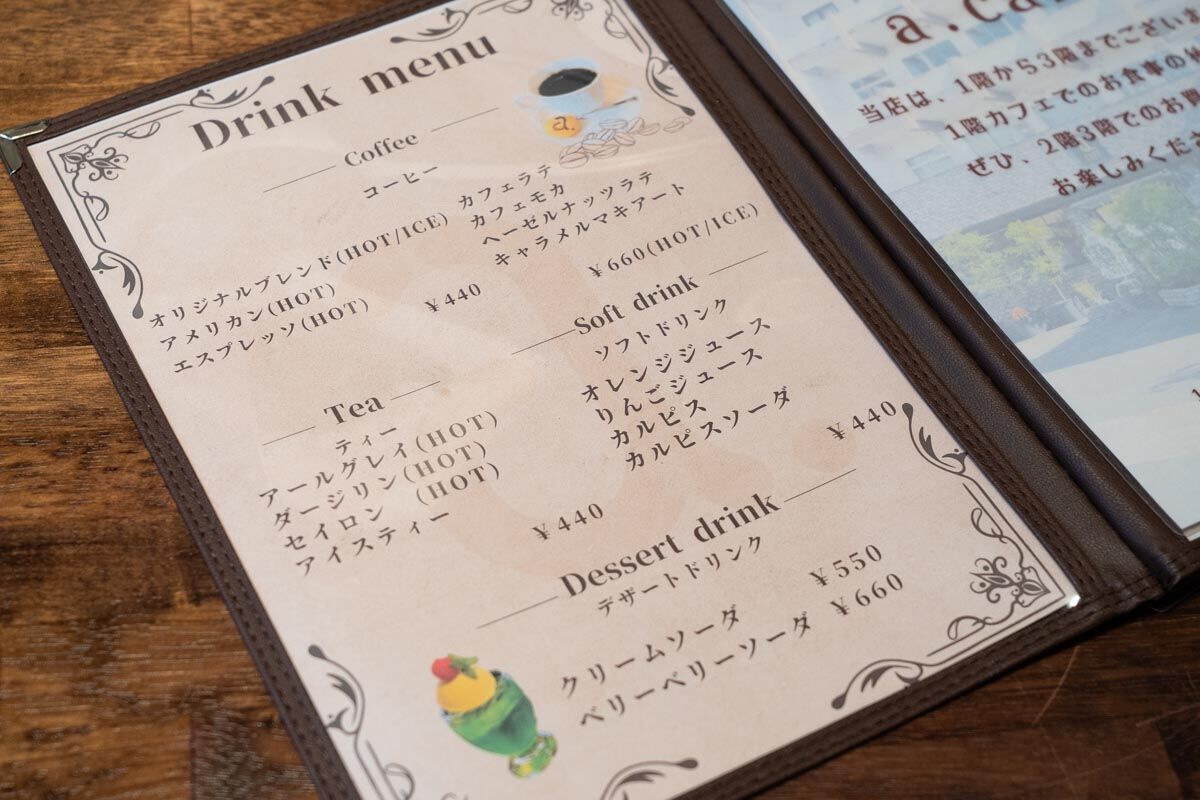 Drink menu
a.
Coffee
コーヒー
オリジナルブレンド(HOT/ICE)
アメリカン(HOT)
エスプレッソ(HOT)
¥440
カフェラテ
カフェモカ
ヘーゼルナッツラテ
キャラメルマキアート
¥660(HOT/ICE)
Tea
ティー
アールグレイ(HOT)
ダージリン(HOT)
セイロン (HOT)
アイスティー
¥440
Soft drink
ソフトドリンク
オレンジジュース
りんごジュース
カルピス
カルピスソーダ
¥440
Dessert drink
デザートドリンク
クリームソーダ ¥550
ベリーベリーソーダ ¥660
当店は、1階から3階までござい
1階カフェでのお食事の
ぜひ、2階3階でのお
お楽しみくだ